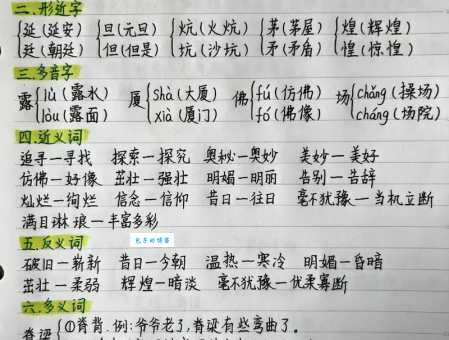 二.形近字
延(延安) 旦(元旦) 炕(火炕) 茅(茅屋) 煌(辉煌)
廷(朝廷) 但(但是) 坑(沙坑) 矛(矛盾) 惶(惊惶)
三.多音字
露 lù(露水) 厦 shà(大厦) 佛 fú(仿佛) 场 chǎng(操场)
lòu(露面) xià(厦门) fó(佛像) cháng(场院)
四.近义词
追寻—寻找 探索—探究 奥秘—奥妙 美妙—美好
仿佛—好像 茁壮—强壮 明媚—明丽 告别—告辞
灿烂—绚烂 信念—信仰 昔日—往日 毫不犹豫—当机立断
满目琳琅—丰富多彩
五.反义词
破旧—崭新 昔日—今朝 温热—寒冷 明媚—昏暗
茁壮—柔弱 辉煌—暗淡 毫不犹豫—优柔寡断
六.多义词
脊梁 ①脊背.例:爷爷老了,脊梁有些弯曲了。